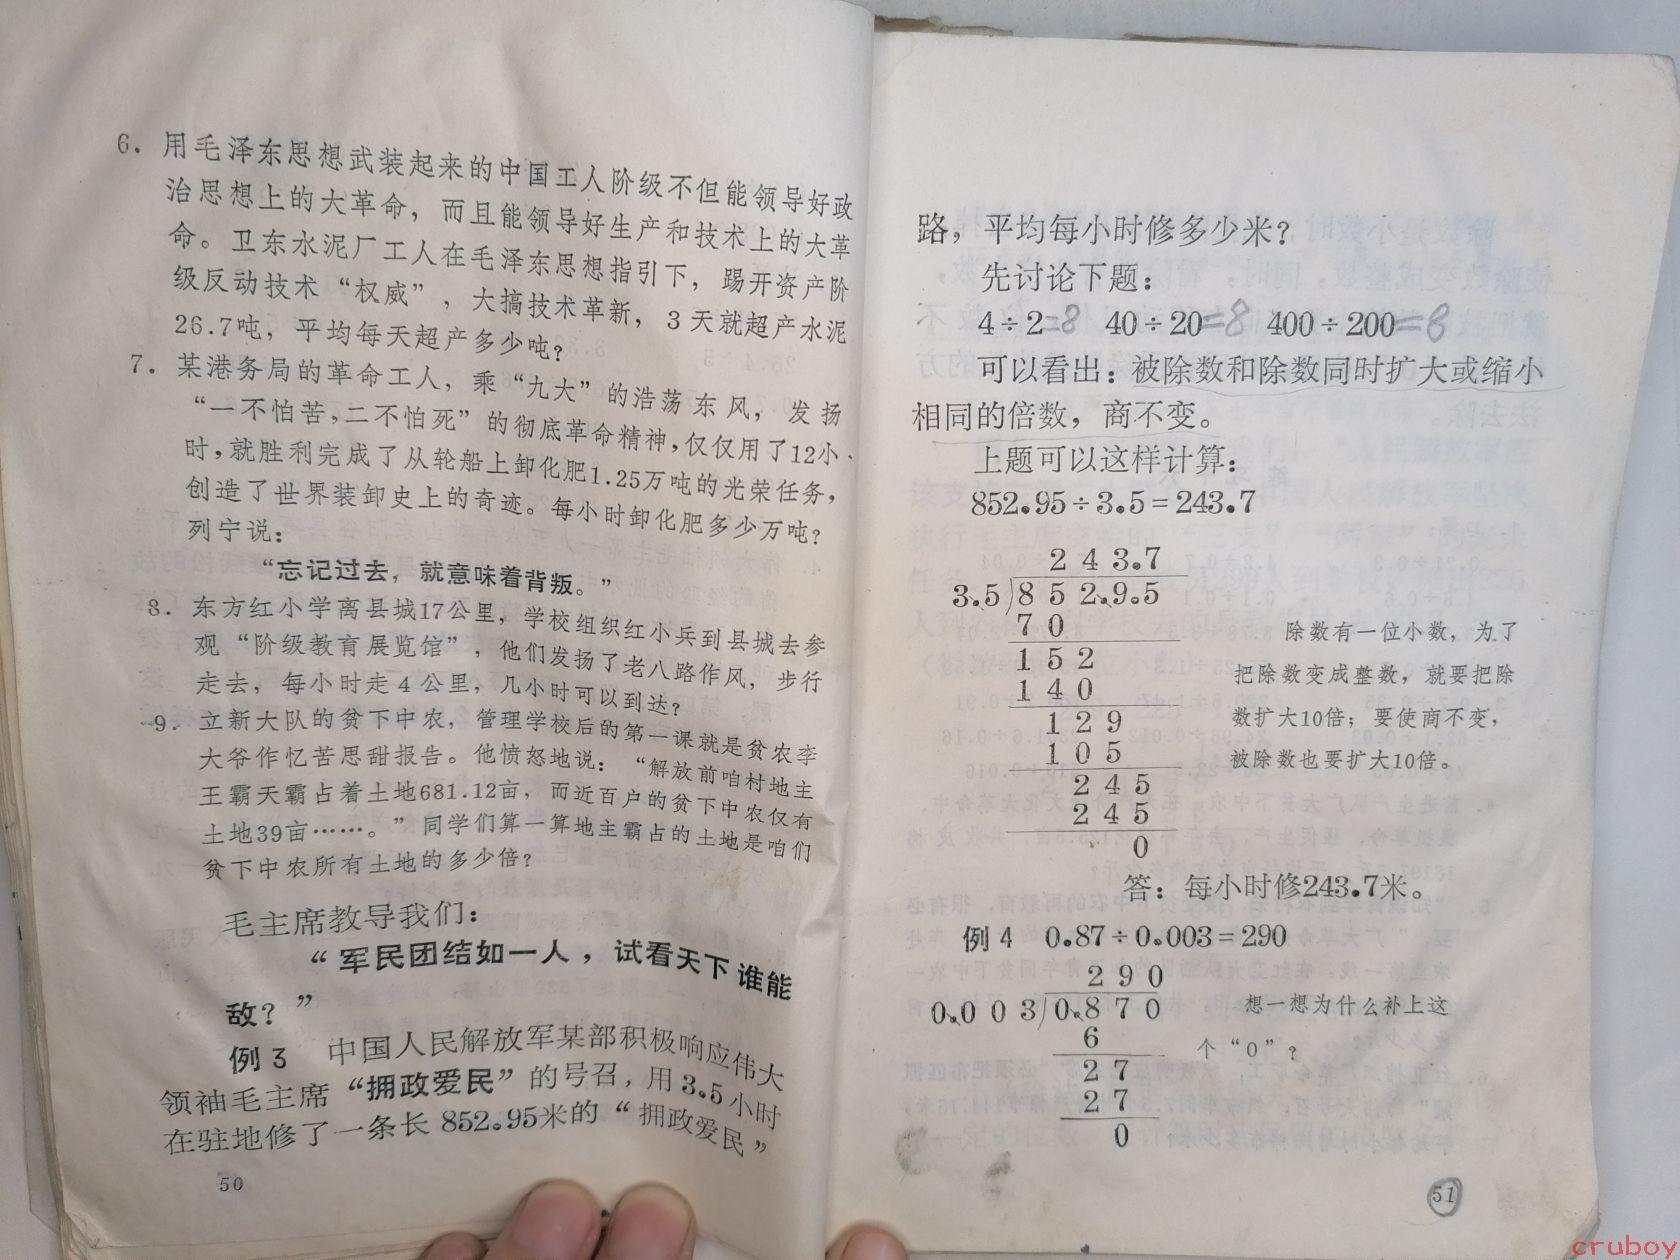 6. 用毛泽东思想武装起来的中国工人阶级不但能领导好政
治思想上的大革命，而且能领导好生产和技术上的大革
命。卫东水泥厂工人在毛泽东思想指引下，踢开资产阶
级反动技术“权威”，大搞技术革新，3天就超产水泥
26.7吨，平均每天超产多少吨？
7. 某港务局的革命工人，乘“九大”的浩荡东风，发扬
“一不怕苦，二不怕死”的彻底革命精神，仅仅用了12小
时，就胜利完成了从轮船上卸化肥1.25万吨的光荣任务，
创造了世界装卸史上的奇迹。每小时卸化肥多少万吨？
列宁说：
“忘记过去，就意味着背叛。”
8. 东方红小学离县城17公里，学校组织红小兵到县城去参
观“阶级教育展览馆”，他们发扬了老八路作风，步行
走去，每小时走4公里，几小时可以到达？
9. 立新大队的贫下中农，管理学校后的第一课就是贫农李
大爷作忆苦思甜报告。他愤怒地说：“解放前咱村地主
王霸天霸占着土地681.12亩，而近百户的贫下中农仅有
土地39亩……。”同学们算一算地主霸占的土地是咱们
贫下中农所有土地的多少倍？
毛主席教导我们：
“军民团结如一人，试看天下谁能
敌？”
例3 中国人民解放军某部积极响应伟大
领袖毛主席“拥政爱民”的号召，用3.5小时
在驻地修了一条长852.95米的“拥政爱民”
50
路，平均每小时修多少米？
先讨论下题：
4÷2=8 40÷20=8 400÷200=8
可以看出：被除数和除数同时扩大或缩小
相同的倍数，商不变。
上题可以这样计算：
852.95÷3.5=243.7
243.7
3.5)852.9.5
70
152
140
129
105
245
245
0
除数有一位小数，为了
把除数变成整数，就要把除
数扩大10倍；要使商不变，
被除数也要扩大10倍。
答：每小时修243.7米。
例4 0.87÷0.003=290
290
0.003)0.870
6
27
27
0
想一想为什么补上这
个“0”？
51
cruboy